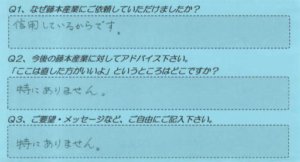 Q1、なぜ藤本産業にご依頼していただけましたか?
信用しているからです。
Q2、今後の藤本産業に対してアドバイス下さい。
「ここは直した方がいいよ」というところはどこですか?
特にありません。
Q3、ご要望・メッセージなど、ご自由にご記入下さい。
特にありません。